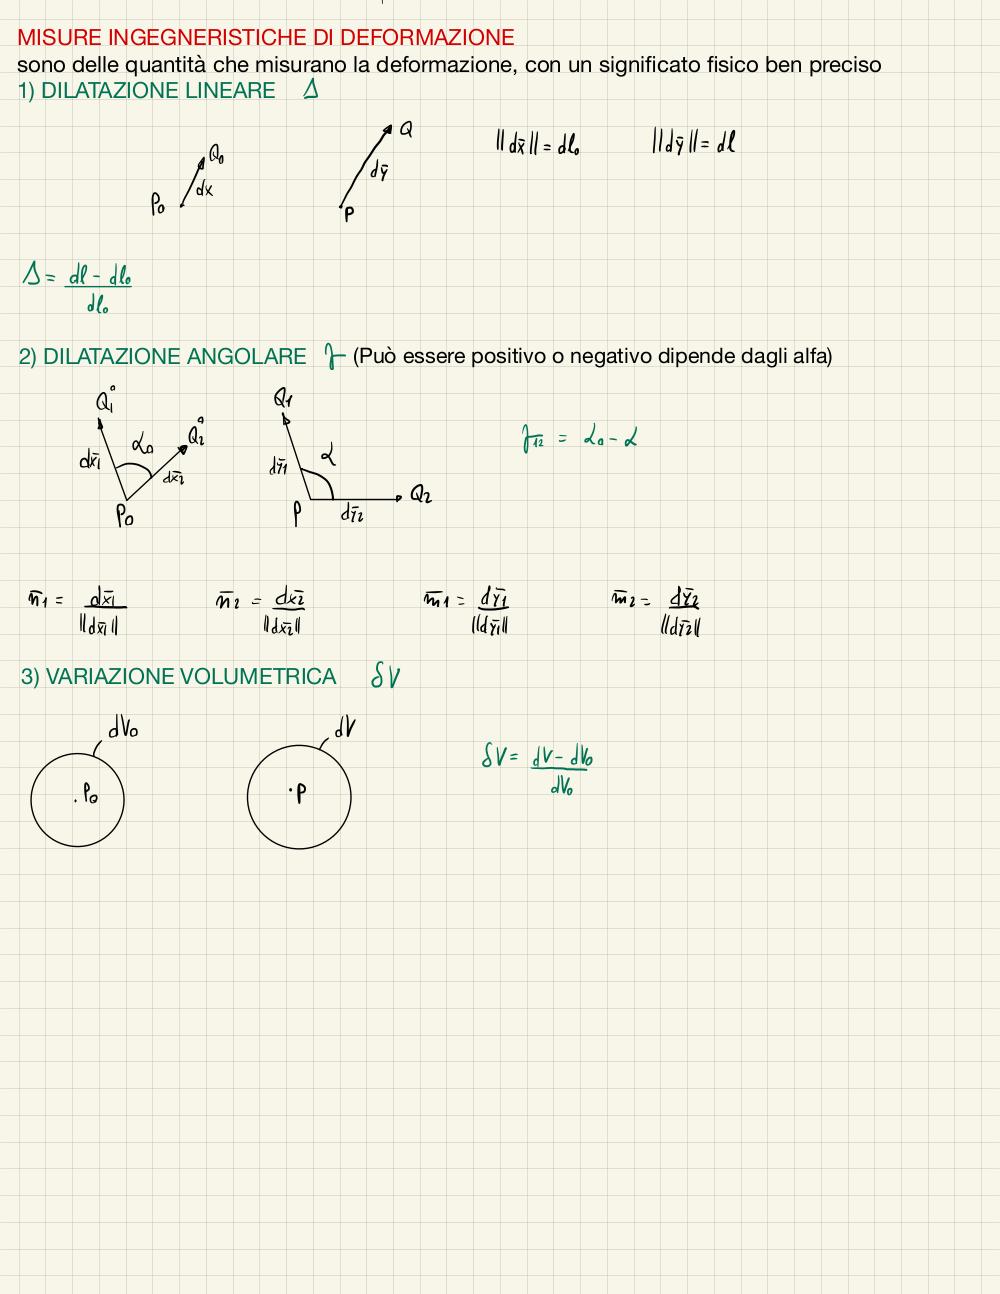 MISURE INGEGNERISTICHE DI DEFORMAZIONE
sono delle quantità che misurano la deformazione, con un significato fisico ben preciso
1) DILATAZIONE LINEARE Δ
P₀ Q₀ dx
P Q dȳ
||dx̄|| = dl₀ ||dȳ|| = dl
Δ = (dl - dl₀) / dl₀
2) DILATAZIONE ANGOLARE γ (Può essere positivo o negativo dipende dagli alfa)
Q₁° Q₂° α₀ dx̄₁ dx̄₂ P₀
Q₁ α dȳ₁ dȳ₂ P Q₂
γ₁₂ = α₀ - α
n̄₁ = dx̄₁ / ||dx̄₁|| n̄₂ = dx̄₂ / ||dx̄₂|| m̄₁ = dȳ₁ / ||dȳ₁|| m̄₂ = dȳ₂ / ||dȳ₂||
3) VARIAZIONE VOLUMETRICA δV
dV₀ P₀
dV P
δV = (dV - dV₀) / dV₀